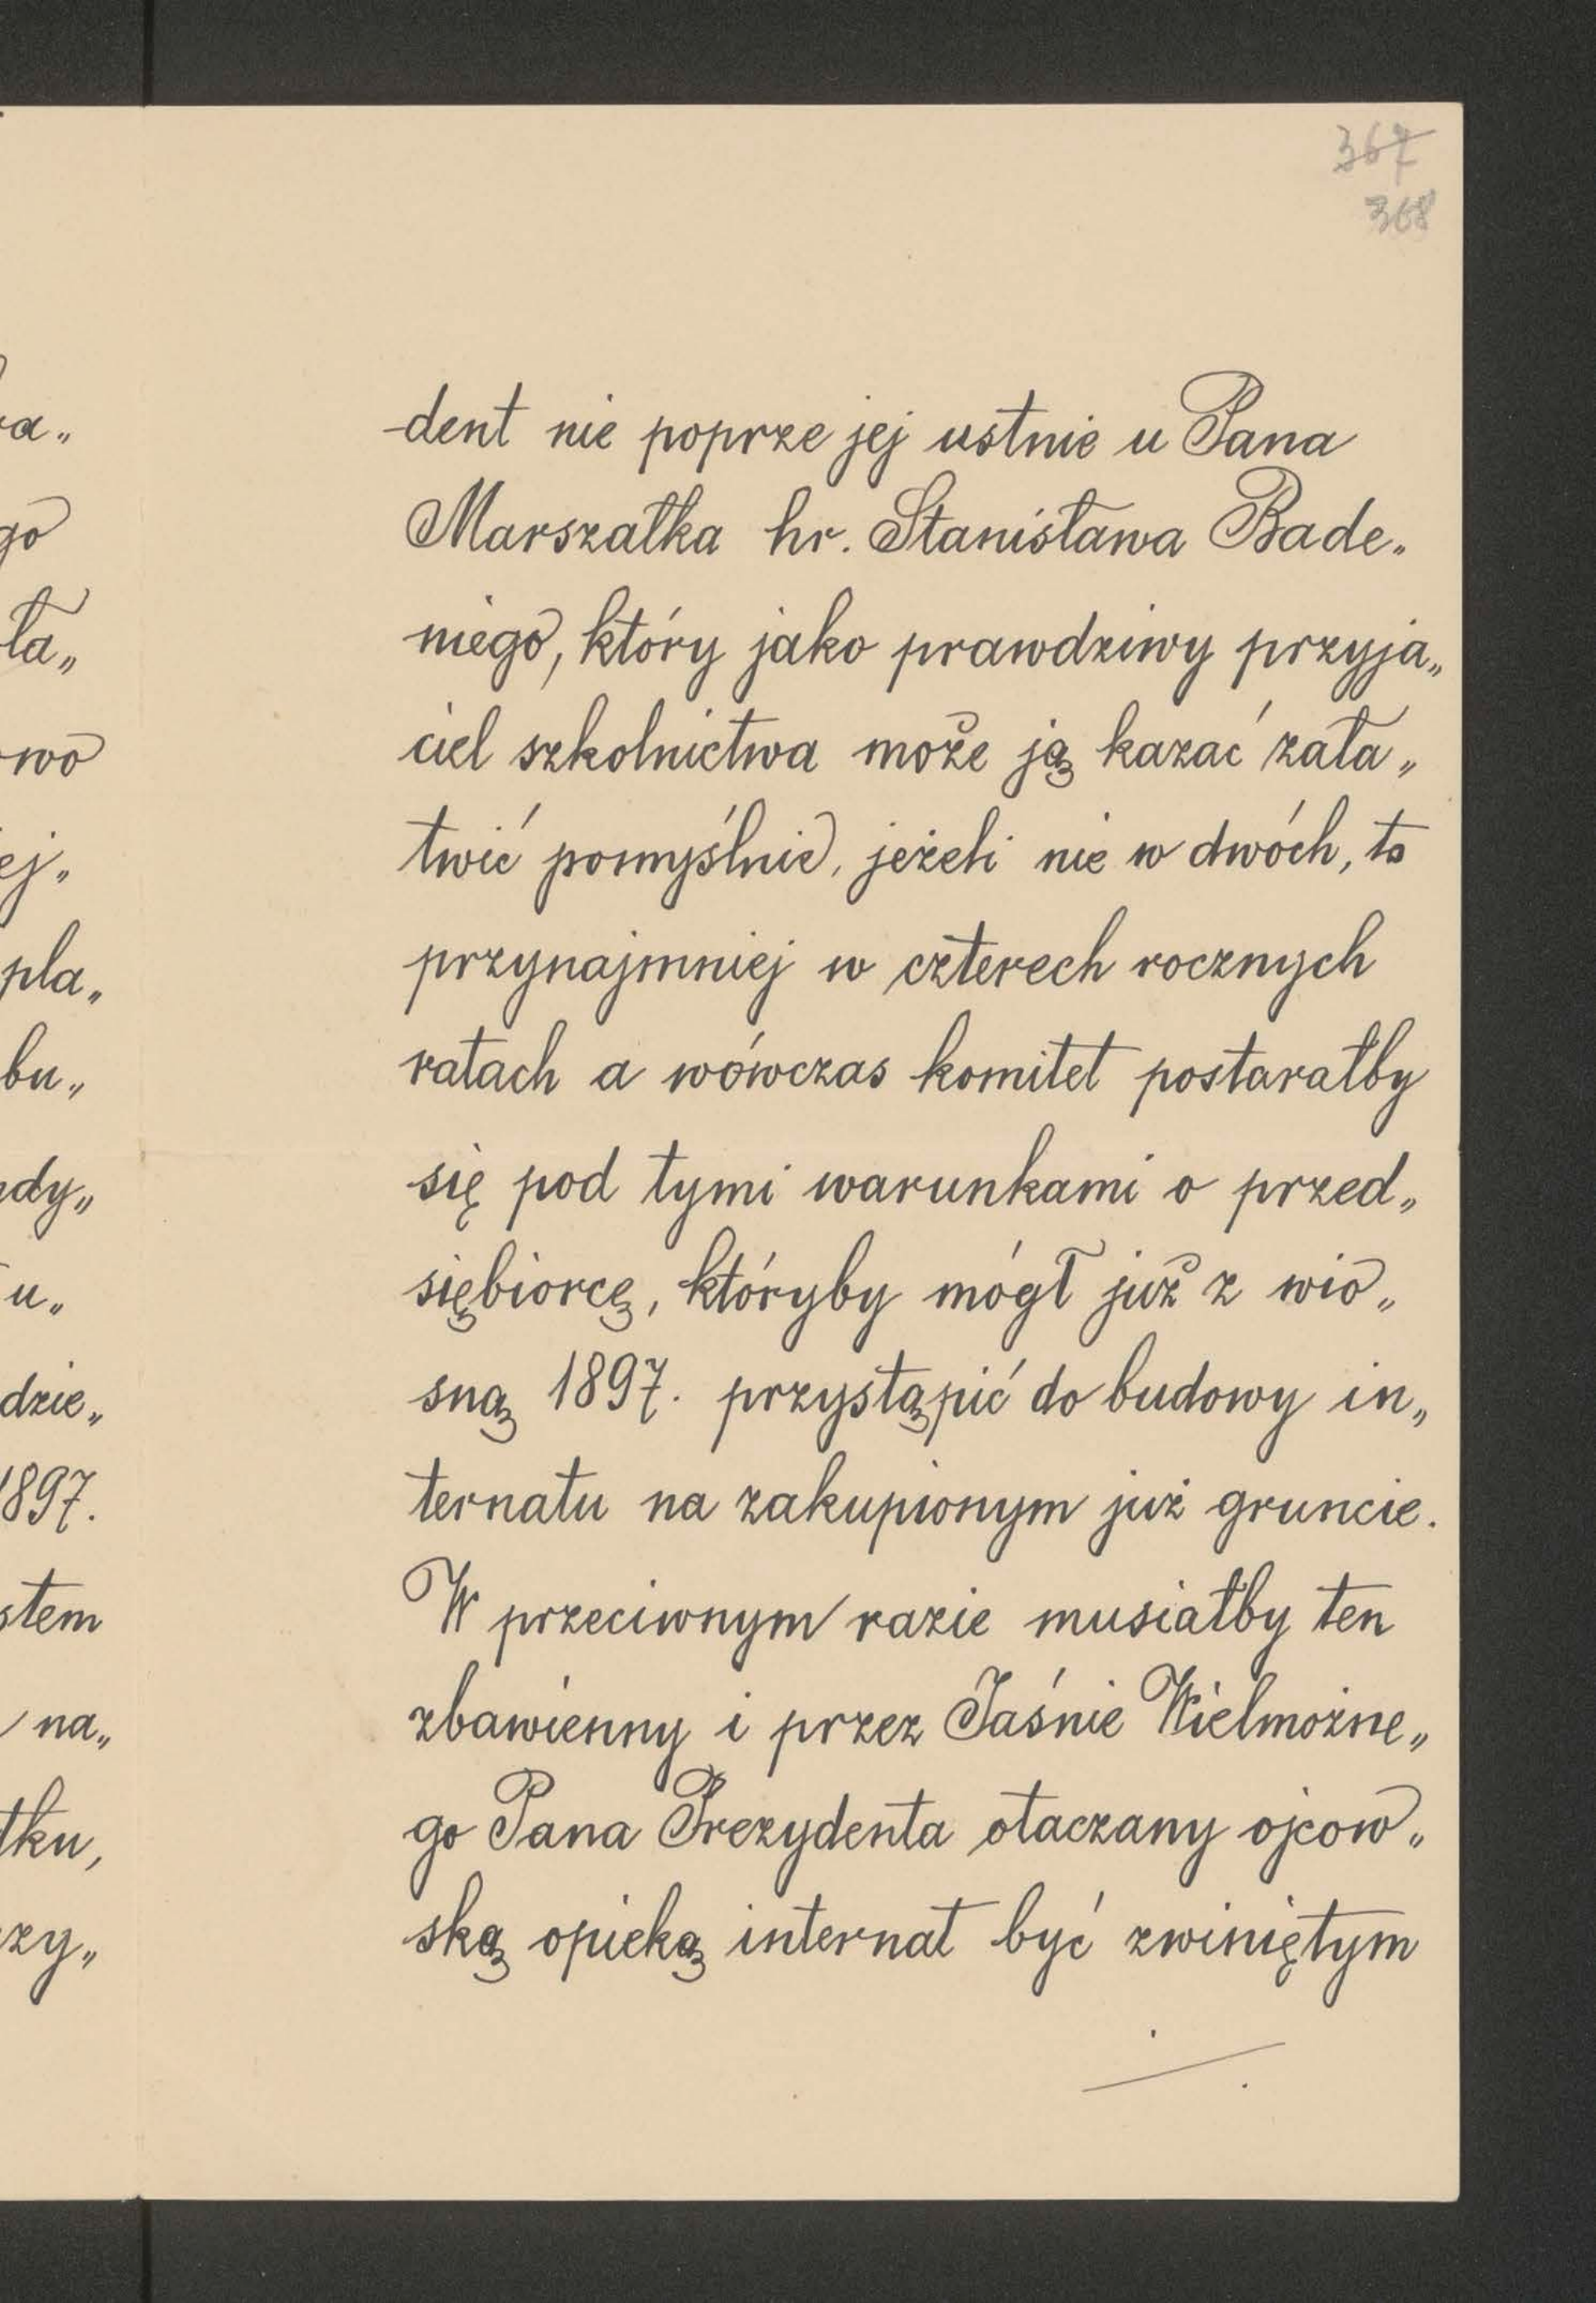 367
368
dent nie poprze jej ustnie u Pana
Marszałka hr. Stanisława Bade„
niego, który jako prawdziwy przyja„
ciel szkolnictwa może ją kazać zała„
twić pomyślnie, jeżeli nie w dwóch, to
przynajmniej w czterech rocznych
ratach a wówczas komitet postarałby
się pod tymi warunkami o przed„
siębiorcę, któryby mógł już z wio„
sną 1897. przystąpić do budowy in„
ternatu na zakupionym już gruncie.
W przeciwnym razie musiałby ten
zbawienny i przez Jaśnie Wielmożne„
go Pana Prezydenta otaczany ojcow„
ską opieką internat być zwiniętym
a„
go
ła„
owo
ej„
pla„
bu„
dy„
u„
dzie„
1897.
stem
na„
tku,
zy„